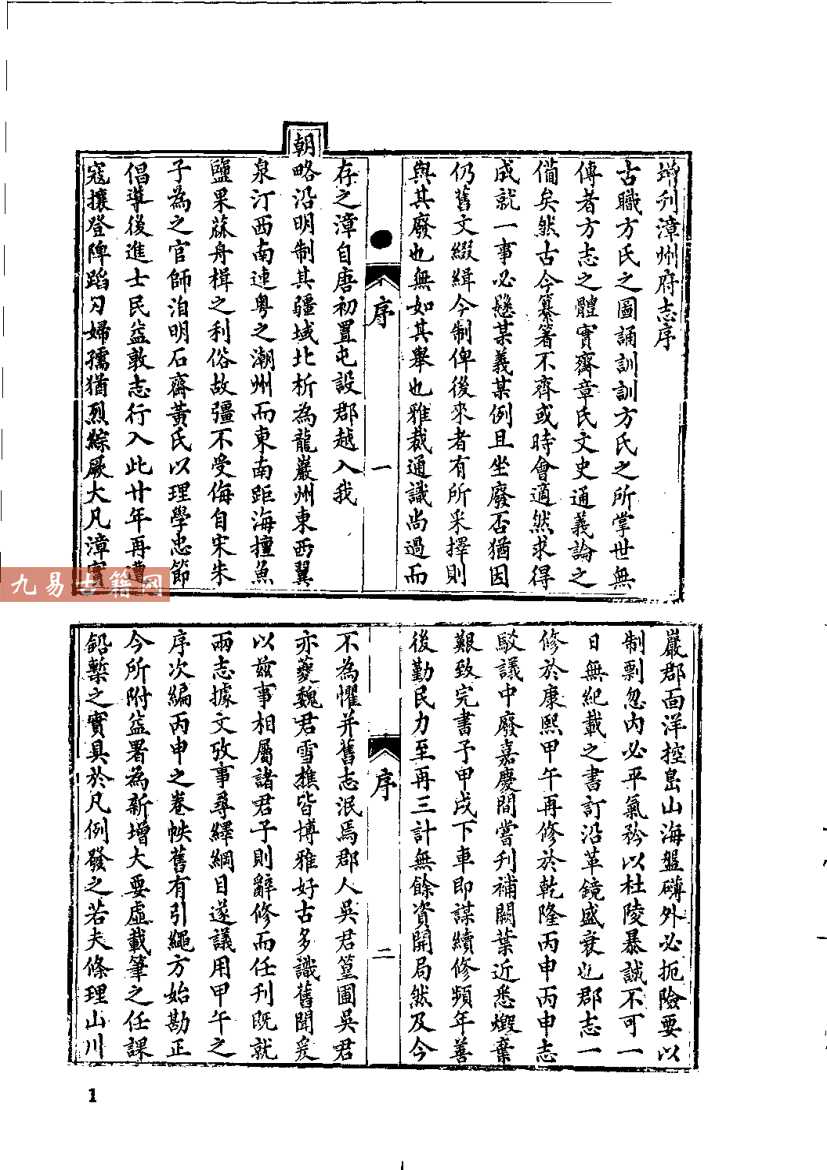 增刊漳州府志序
古職方氏之圖誦訓訓方氏之所掌世無
傳者方志之體實齋章氏文史通義論之
僃矣然古今纂著不齊或時會適然求得
成就一事必懸某義某例且坐廢否猶因
仍舊文綴緝今制俾後來者有所采擇則
與其廢也無如其舉也雅裁通識尚過而
序
一
存之漳自唐初置屯設郡越入我
朝略沿明制其疆域北析為龍巖州東西翼
泉汀西南連粤之潮州而東南距海擅魚
鹽果蓏舟楫之利俗故彊不受侮自宋朱
子為之官師洎明石齋黃氏以理學忠節
倡導後進士民益敦志行入此廿年再遭
寇攘登陴蹈刃婦孺猶烈綜厥大凡漳實
九易古籍网
巖郡面洋控島山海盤礴外必扼險要以
制剽忽內必平氣矜以杜陵暴誠不可一
日無紀載之書訂沿革鏡盛衰也郡志一
修於康熙甲午再修於乾隆丙申丙申志
駁議中廢嘉慶間嘗刊補闕葉近悉燬棄
艱致完書予甲戌下車即謀續修頻年善
後勤民力至再三計無餘資開局然及今
序
二
不為懼并舊志泯焉郡人吳君篁圃吳君
亦夔魏君雪樵皆博雅好古多識舊聞爰
以兹事相屬諸君子則辭修而任刊既就
兩志據文攷事尋繹綱目遂議用甲午之
序次編丙申之卷帙舊有引繩方始勘正
今所附益署為新增大要虛載筆之任課
鉛槧之實具於凡例發之若夫條理山川
1